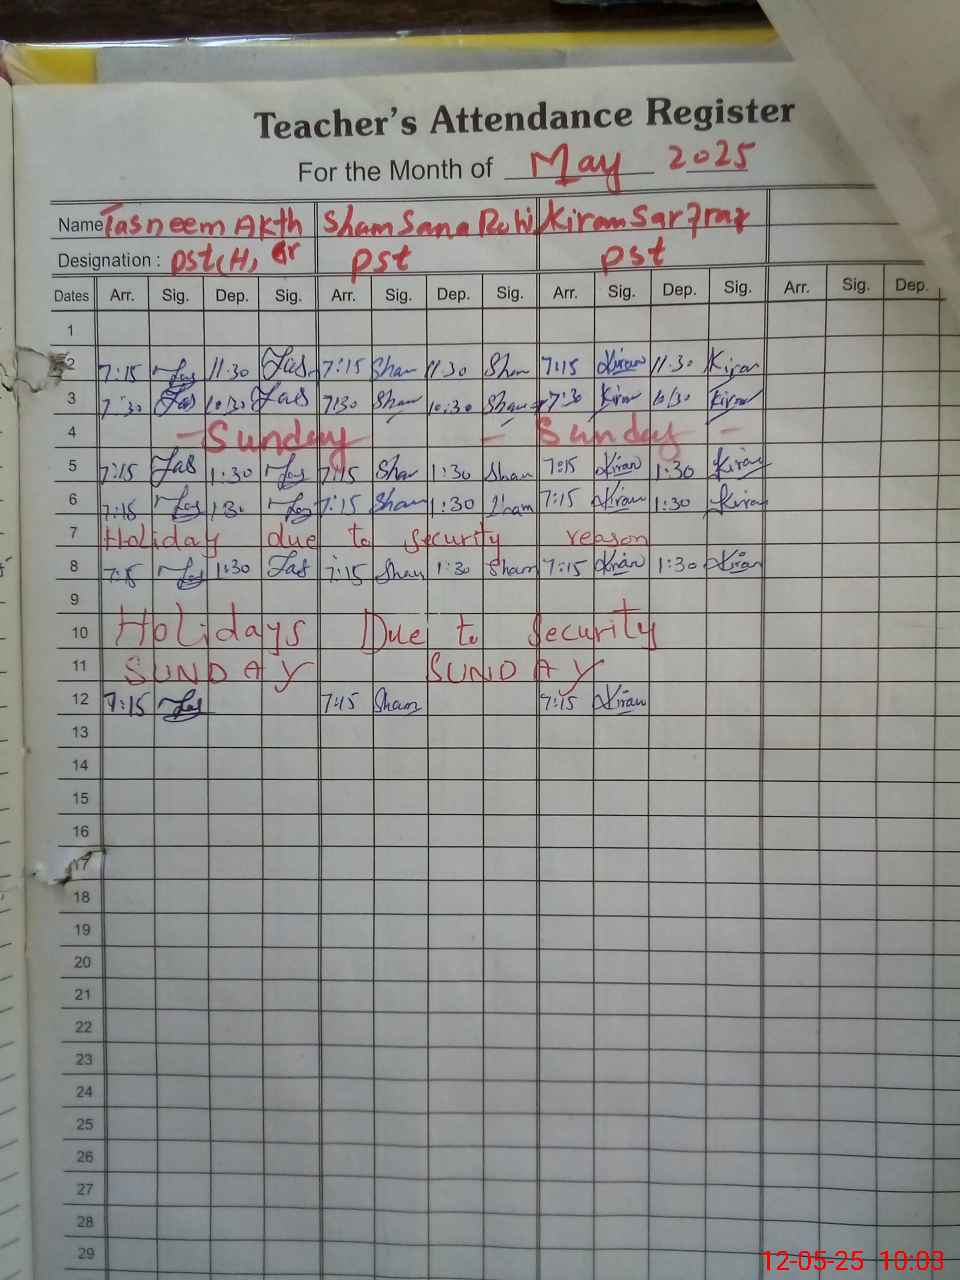 Teacher's Attendance Register
For the Month of May 2025
Name Tasneem Akth Sham Sana Ruhi Kiran Sarfraz
Designation : pst(H, Gr pst pst
Dates Arr. Sig. Dep. Sig. Arr. Sig. Dep. Sig. Arr. Sig. Dep. Sig. Arr. Sig. Dep.
1
2 7:15 Tas 11:30 Tas 7:15 Sham 11:30 Sham 7:15 Kiran 11:30 Kiran
3 7:30 Tas 10:30 Tas 7:30 Sham 10:30 Sham 7:30 Kiran 10:30 Kiran
4 - Sunday - Sunday -
5 7:15 Tas 1:30 Tas 7:15 Sham 1:30 Sham 7:15 Kiran 1:30 Kiran
6 7:15 Tas 1:30 Tas 7:15 Sham 1:30 Sham 7:15 Kiran 1:30 Kiran
7 Holiday due to security reason
8 Tas 1:30 Tas 7:15 Sham 1:30 Sham 7:15 Kiran 1:30 Kiran
9
10 Holidays Due to Security
11 SUNDAY SUNDAY
12 7:15 Tas 7:15 Sham 7:15 Kiran
13
14
15
16
17
18
19
20
21
22
23
24
25
26
27
28
29
12-05-25 10:03